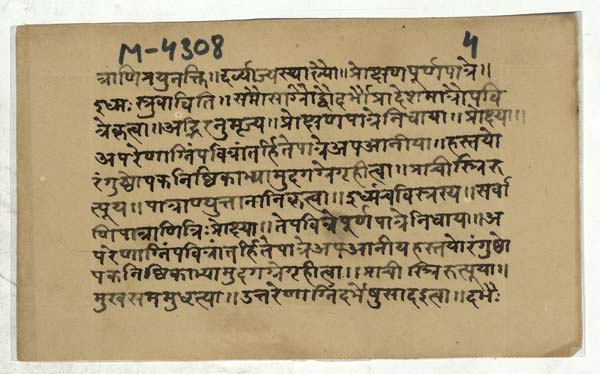 M-4308 4
त्राणि प्रयुनक्ति॥ दर्व्याज्यस्थाल्यौ॥ प्रोक्षणपूर्णपात्रे॥
इध्मः स्रुवाविति॥ समौ साग्रौ द्वौ दर्भौ प्रादेशमात्रौ पवि
त्रे कृत्वा॥ अद्भिरनुमृज्य॥ प्रोक्षणपात्रे निधाया॥ प्रोक्ष्या॥
अपरेणाग्निं पवित्रांतर्हिते पात्रे अप आनीया॥ हस्तयो
रंगुष्ठोपकनिष्ठिकाभ्यामुदगग्रे गृहीत्वा॥ प्राची स्त्रिरु
त्पूय॥ पात्राण्युत्तानानि कृत्वा॥ इध्मं च विस्रस्य॥ सर्वा
णि पात्राणि त्रिः प्रोक्ष्या॥ ते पवित्रे पूर्णपात्रे निधाय॥ अ
परेणाग्निं पवित्रांतर्हिते पात्रे अप आनीय हस्तयोरंगुष्ठो
पकनिष्ठिकाभ्यामुदगग्रे गृहीत्वा॥ प्राची स्त्रिरुत्पूया॥
मुखसममुधृत्या॥ उत्तरेणाग्निं दर्भेषु सादइत्वा॥ दर्भैः